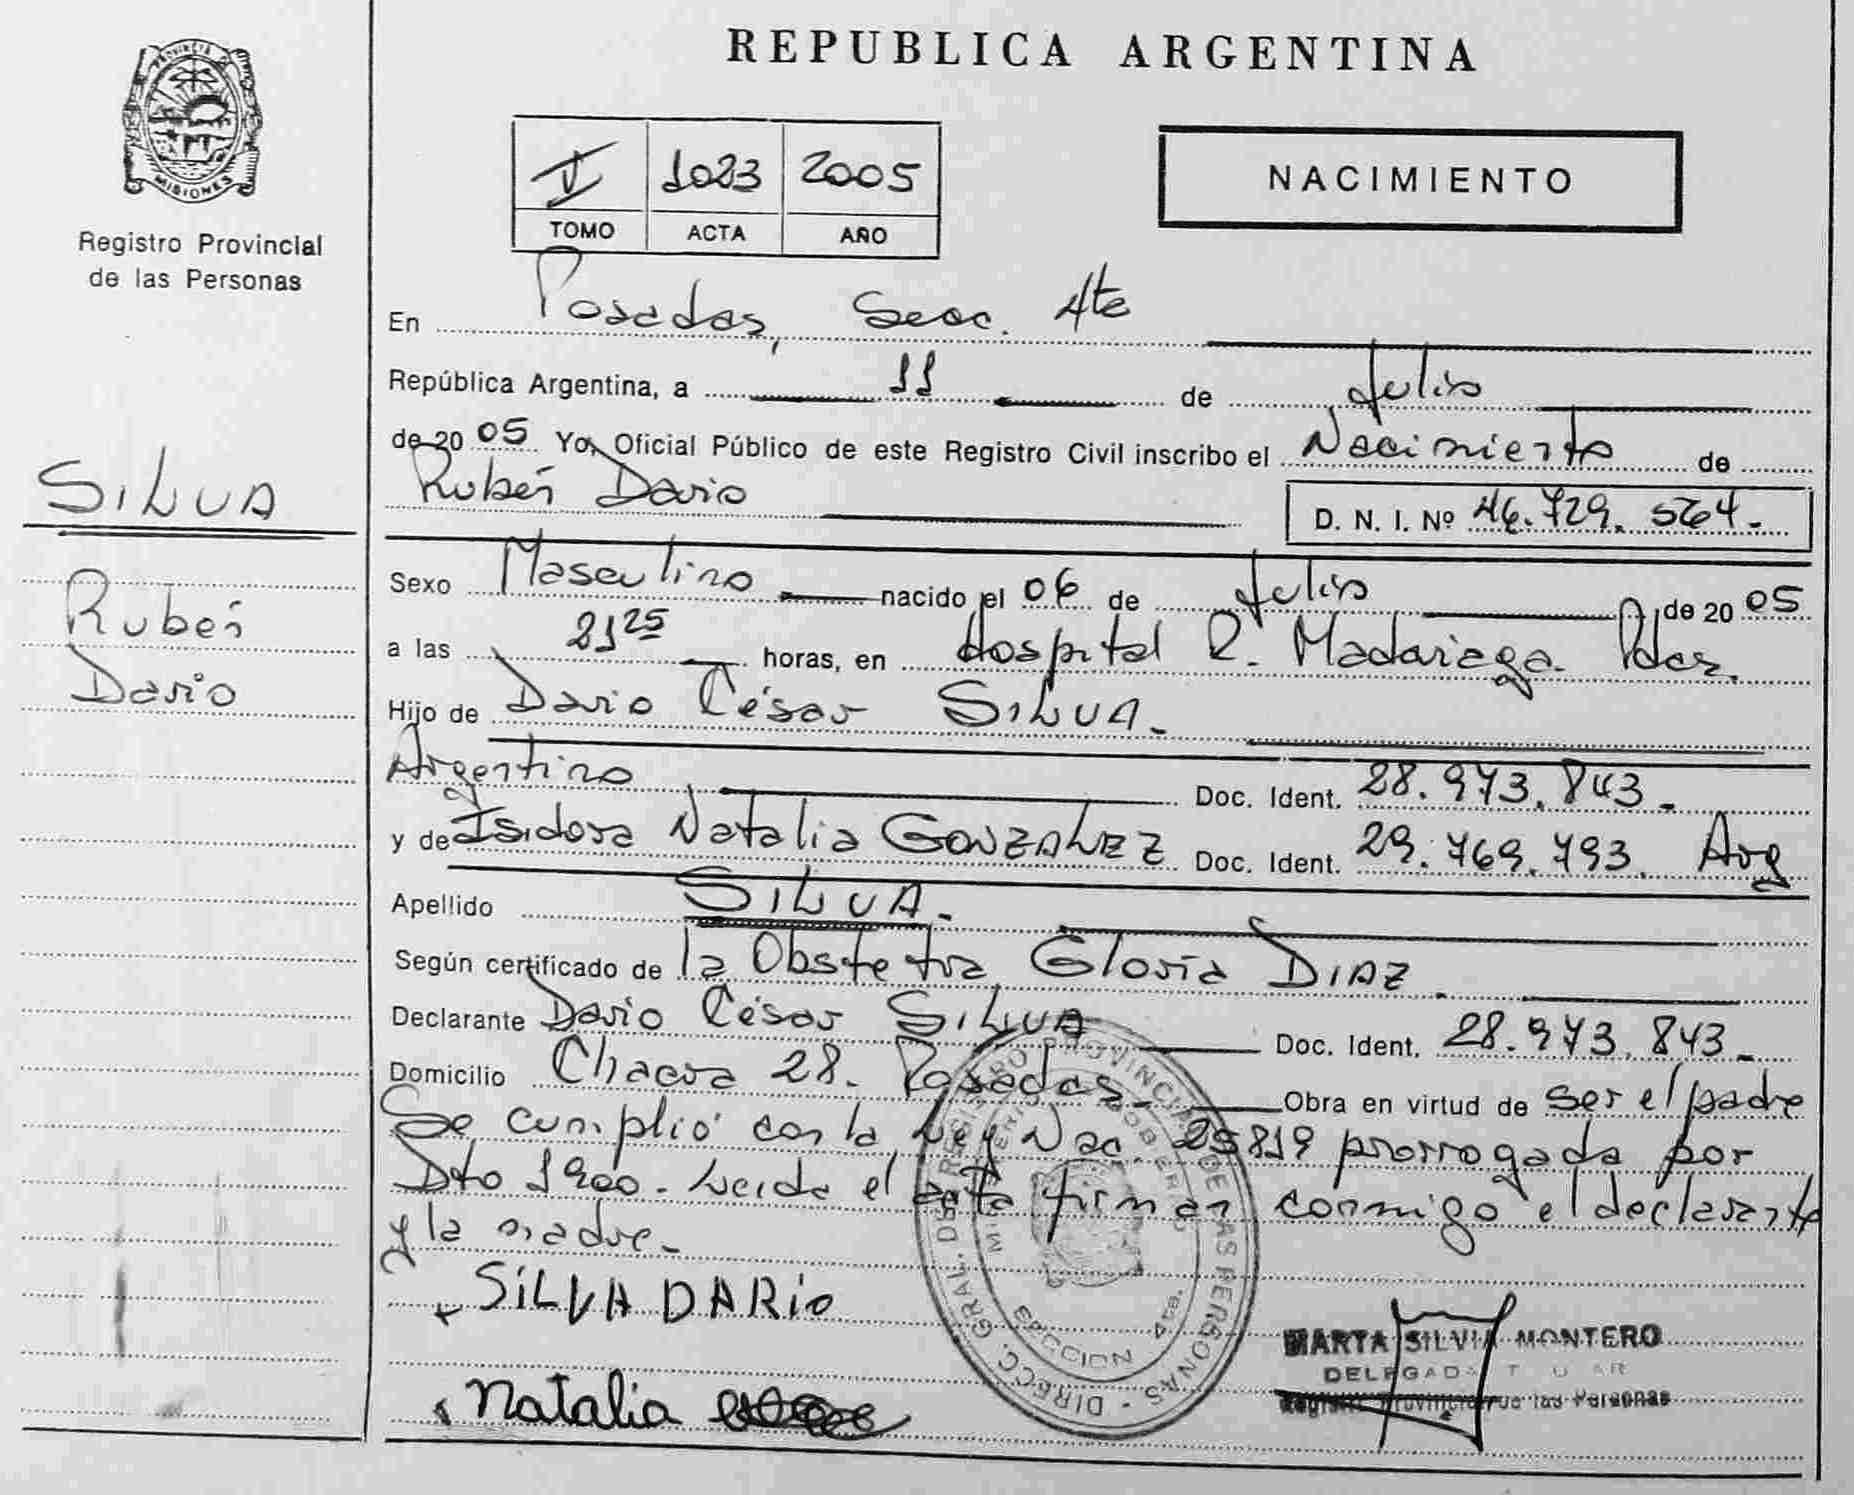 REPUBLICA ARGENTINA
PROVINCIA DE MISIONES
Registro Provincial
de las Personas
I 1023 2005
TOMO ACTA AÑO
NACIMIENTO
En Posadas, Secc. 4ta
República Argentina, a 11 de Julio
de 2005 Yo, Oficial Público de este Registro Civil inscribo el Nacimiento de
Rubén Dario
D. N. I. Nº 46.729.564.-
SILVA
Rubén
Dario
Sexo Masculino nacido el 06 de Julio de 2005
a las 21 25 horas, en Hospital R. Madariaga. Pdas.
Hijo de Dario César SILVA.-
Argentino Doc. Ident. 28.973.843.-
y de Isidora Natalia GONZALEZ Doc. Ident. 29.769.793. Arg
Apellido SILVA.-
Según certificado de la Obstetra Gloria DIAZ.
Declarante Dario César SILVA Doc. Ident. 28.973.843.-
Domicilio Chacra 28. Posadas.- Obra en virtud de ser el padre
Se cumplió con la Ley Nac. 25819 prorrogada por
Dto 1900. Leida el acta firman conmigo el declarante
y la madre.-
SILVA DARIO
Natalia
DIRECC. GRAL. DE REGISTRO PROVINCIAL DE LAS PERSONAS
SECCION 4ta.
MARTA SILVIA MONTERO
DELEGADA TITULAR
Registro Provincial de las Personas